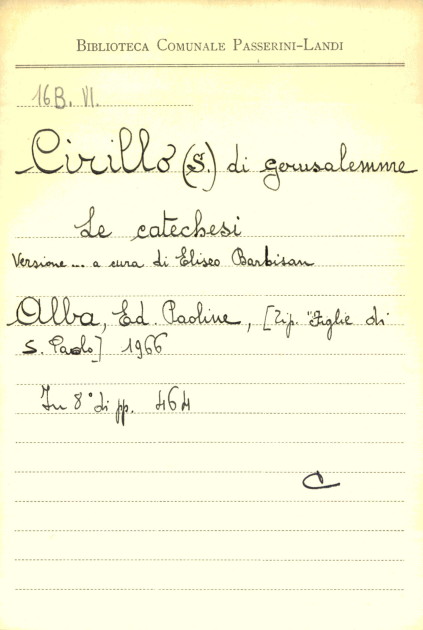 BIBLIOTECA COMUNALE PASSERINI-LANDI
16B. VI.
Cirillo (S.) di Gerusalemme
Le catechesi
Versione... a cura di Eliseo Barbisan
Alba, Ed. Paoline, [Tip. "Figlie di
S. Paolo] 1966
In 8° di pp. 464
C